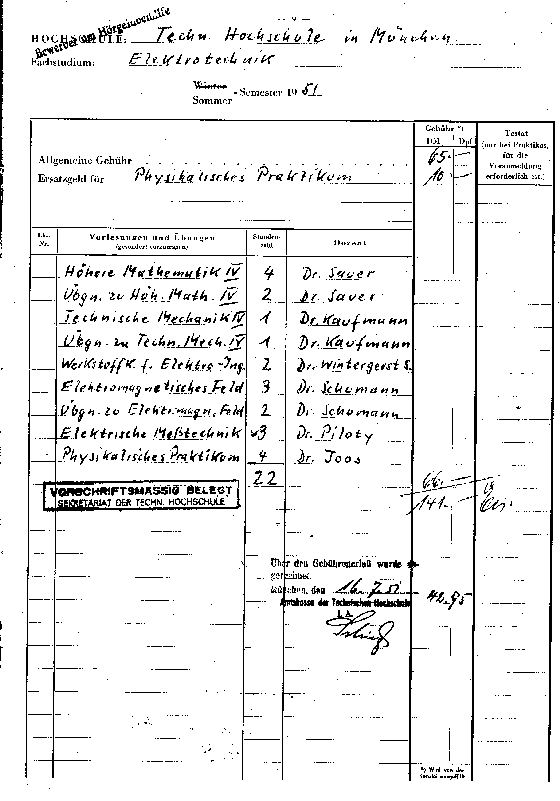 Bewerber um Hörgeldnachhilfe
HOCHSCHULE: Techn. Hochschule in München
Fachstudium: Elektrotechnik
Winter
Sommer - Semester 1951
Gebühr *)
DM Dpf
Testat
(nur bei Praktikas,
für die
Voranmeldung
erforderlich ist.)
Allgemeine Gebühr 65.-
Ersatzgeld für Physikalisches Praktikum 10.-
Nr.
Vorlesungen und Übungen
(gesondert einzutragen)
Stunden-
zahl
Dozent
Höhere Mathematik IV 4 Dr. Sauer
Übgn. zu Höh. Math. IV 2 Dr. Sauer
Technische Mechanik IV 1 Dr. Kaufmann
Übgn. zu Techn. Mech. IV 1 Dr. Kaufmann
Werkstoffk. f. Elektro-Ing. 2 Dr. Wintergerst S.
Elektromagnetisches Feld 3 Dr. Schumann
Übgn. zu Elektromagn. Feld 2 Dr. Schumann
Elektrische Meßtechnik 3 Dr. Piloty
Physikalisches Praktikum 4 Dr. Joos
22 66.-
141.-
VORSCHRIFTSMÄSSIG BELEGT
SEKRETARIAT DER TECHN. HOCHSCHULE
Über den Gebührenerlaß wurde
gerechnet.
München, den 16.7.51
Amtskasse der Technischen Hochschule
I.A.
42.75
*) Wird von der